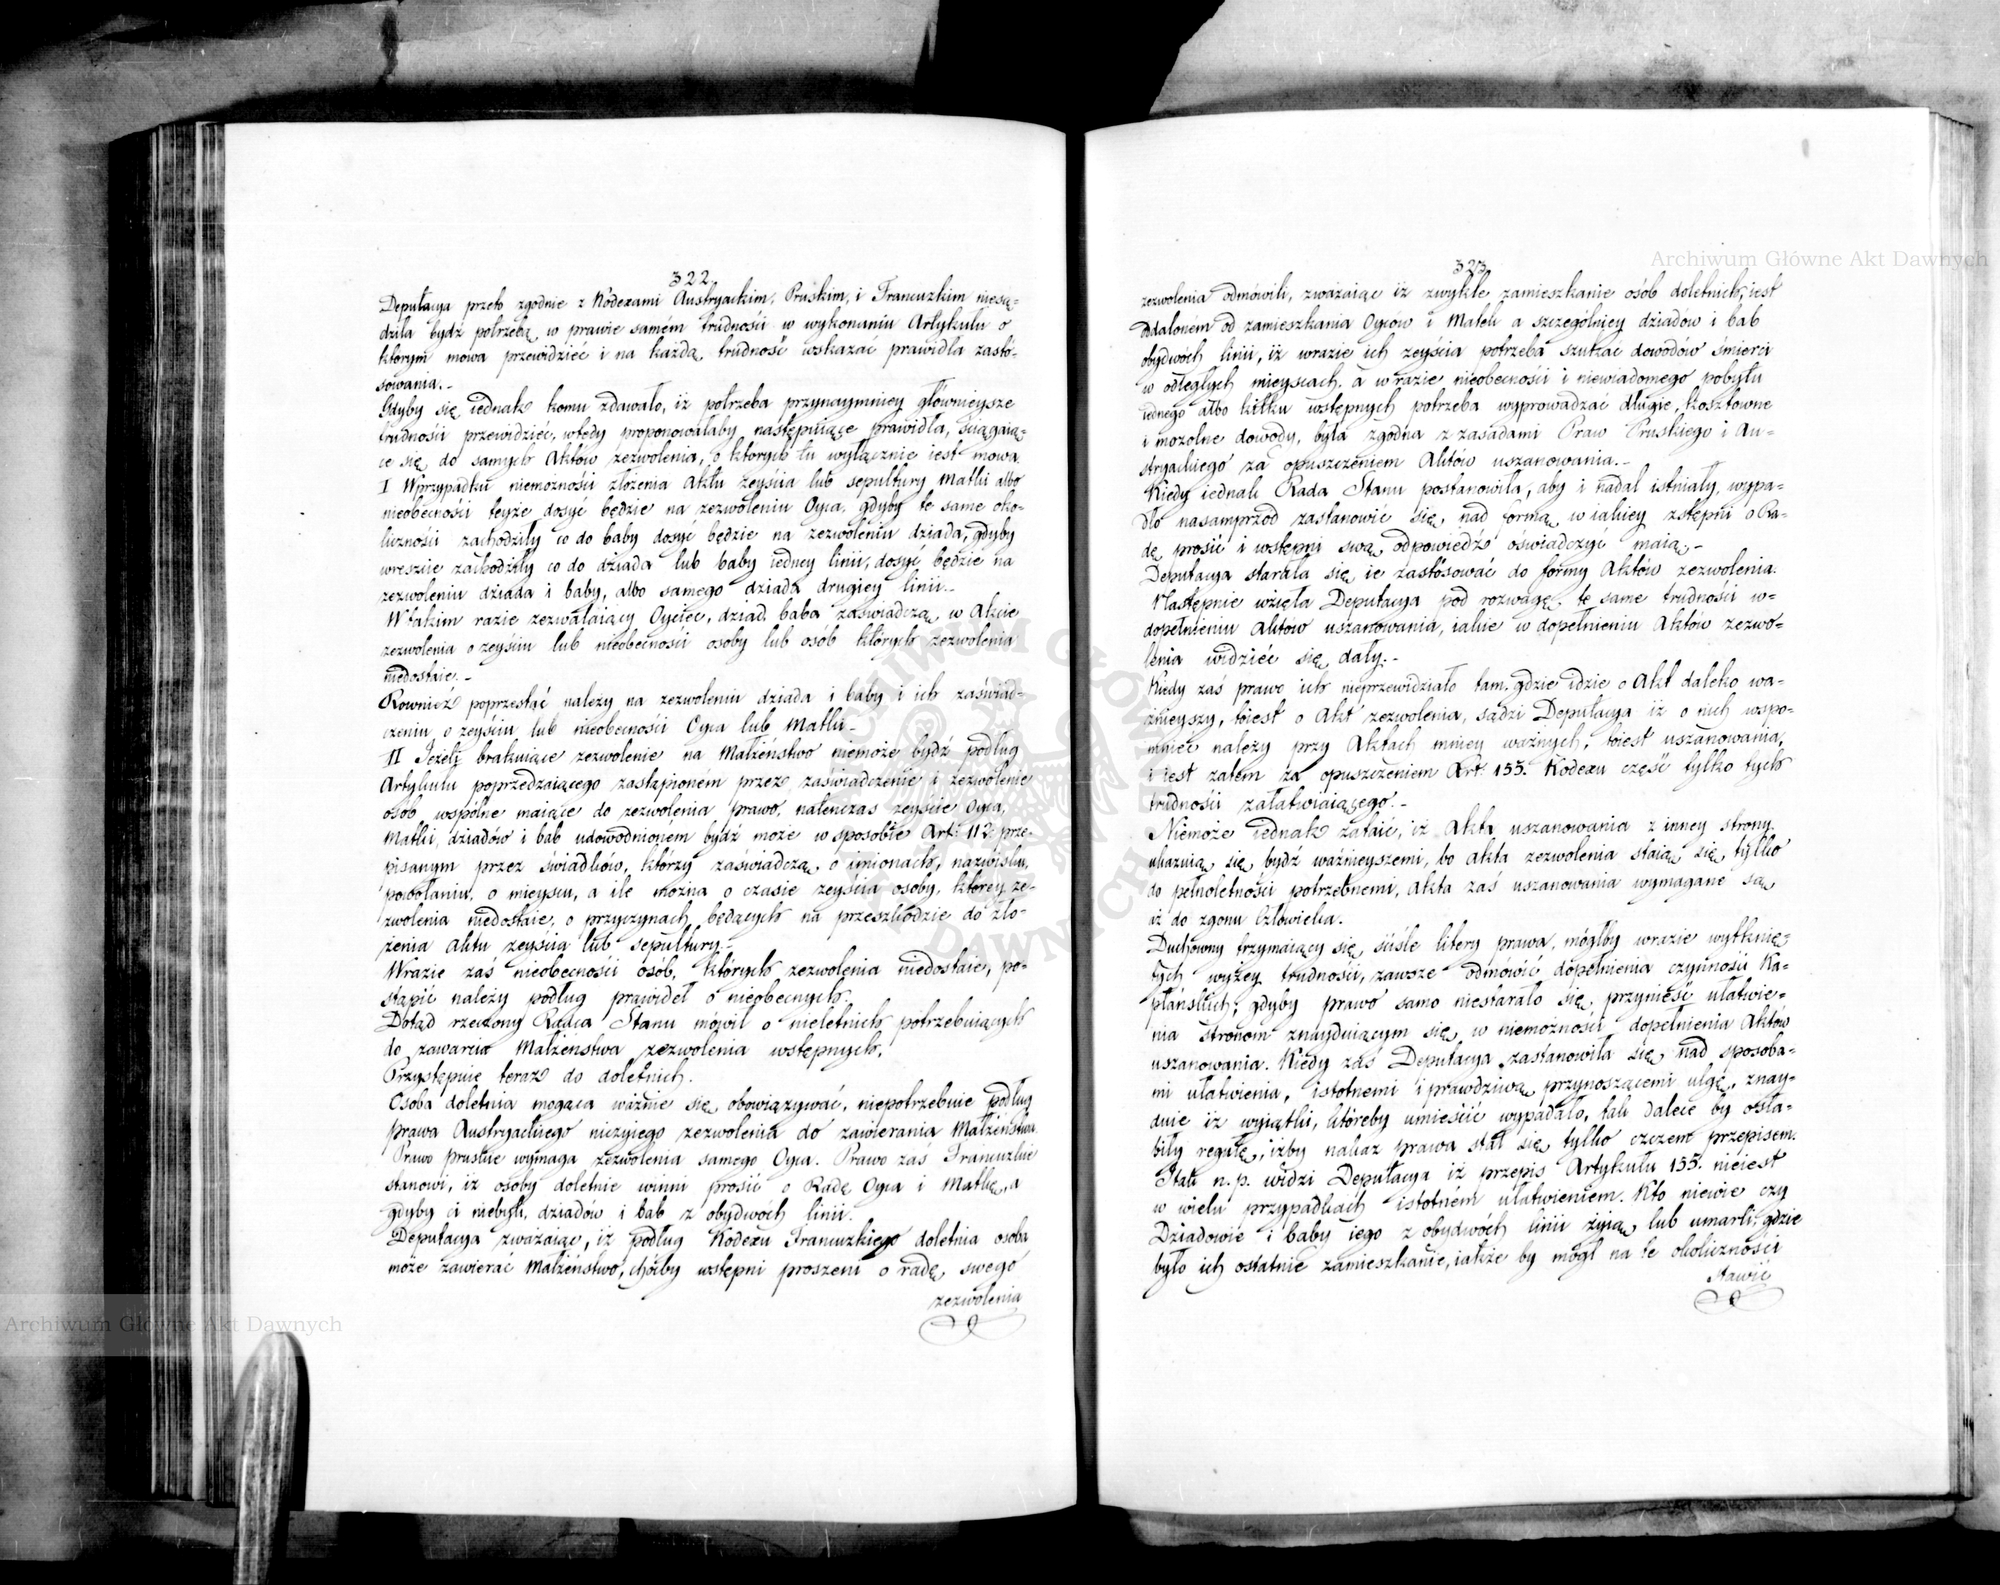 322
Deputacya przeto zgodnie z Kodexami Austryackim, Pruskim, i Francuzkim niesą-
dziła bydź potrzebą w prawie samém trudności w wykonaniu Artykułu o
którym mowa przewidzieć i na każdą trudność wskazać prawidła zasto-
sowania.-
Gdyby się iednak komu zdawało, iż potrzeba przynaymniey głównieysze
trudności przewidzieć, wtedy proponowałaby następuiące prawidła, sciągaią-
ce się do samych Aktów zezwolenia, o których tu wyłącznie iest mowa
I Wprzypadku niemożności złożenia Aktu zeyścia lub sepultury Matki albo
nieobecności teyże dosyć będzie na zezwoleniu Oyca, gdyby te same oko-
liczności zachodziły co do baby dosyć będzie na zezwoleniu dziada, gdyby
wreszcie zachodziły co do dziada lub baby iedney linii, dosyć będzie na
zezwoleniu dziada i baby, albo samego dziada drugiey linii.-
W takim razie zezwalaiący Oyciec, dziad, baba zaświadczą w Akcie
zezwolenia o zeyściu lub nieobecności osoby lub osób których zezwolenia
niedostaie.-
Rownież poprzestać należy na zezwoleniu dziada i baby i ich zaświad-
czeniu o zeyściu lub nieobecności Oyca lub Matki.-
II Jeżeli brakuiące zezwolenie na Małżeństwo niemoże bydź podług
Artykułu poprzedzaiącego zastąpioném przez zaświadczenie i zezwolenie
osób wspólne maiące do zezwolenia prawo, natenczas zeyście Oyca,
Matki, dziadów i bab udowodnionem bydź może w sposobie Art: 112 prze-
pisanym przez świadków, którzy zaświadczą o imionach, nazwisku,
powołaniu, o mieyscu, a ile można o czasie zeyścia osoby, którey ze-
zwolenia niedostaie, o przyczynach będących na przeszkodzie do zło-
żenia Aktu zeyścia lub sepultury.-
Wrazie zaś nieobecności osób, których zezwolenia niedostaie, po-
stąpić należy podług prawideł o nieobecnych.
Dotąd rzeczony Radca Stanu mówił o nieletnich potrzebuiących
do zawarcia Małżenstwa zezwolenia wstępnych.
Przystępuie teraz do doletnich.
Osoba doletnia mogąca ważnie się obowiązywać, niepotrzebuie podług
prawa Austryackiego niczyiego zezwolenia do zawierania Małżeństwa.
Prawo pruskie wymaga zezwolenia samego Oyca. Prawo zaś Francuzkie
stanowi, iż osoby doletnie winni prosić o Radę Oyca i Matkę, a
gdyby ci niebyli, dziadów i bab z obydwóch linii.
Deputacya zważaiąc, iż podług Kodexu Francuzkiego doletnia osoba
może zawierać Małżeństwo, chóćby wstępni proszeni o radę, swego
zezwolenia
323
zezwolenia odmówili, zważaiąc iż zwykle zamieszkanie osób doletnich, iest
oddaloném od zamieszkania Oyców i Matek a szczególniey dziadów i bab
obydwóch linii, iż wrazie ich zeyścia potrzeba szukać dowodów śmierci
w odległych mieyscach, a w razie nieobecności i niewiadomego pobytu
iednego albo kilku wstępnych potrzeba wyprowadzać długie, kosztowne
i mozolne dowody, była zgodna z zasadami Praw Pruskiego i Au-
stryackiego za opuszczeniem Aktów uszanowania.-
Kiedy iednak Rada Stanu postanowiła, aby i nadal istniały, wypa-
dło nasamprzód zastanowić się, nad formą w iakiey zstępni o Ra-
dę prosić i wstępni swą odpowiedź oświadczyć maią.-
Deputacya starała się ie zastósować do formy Aktów zezwolenia.
Następnie wzięła Deputacya pod rozwagę te same trudności w-
dopełnieniu Aktów uszanowania, iakie w dopełnieniu Aktów zezwo-
lenia widzieć się dały.-
Kiedy zaś prawo ich nieprzewidziało tam, gdzie idzie o Akt daleko wa-
żnieyszy, toiest o Akt zezwolenia, sądzi Deputacya iż o nich wspo-
mnieć należy przy Aktach mniey ważnych, toiest uszanowania,
i iest zatem za opuszczeniem Art: 155. Kodexu część tylko tych
trudności załatwiaiącego.-
Niemoże iednak zataić, iż Akta uszanowania z inney strony
ukazuią się bydź ważnieyszemi, bo Akta zezwolenia staią się tylko
do pełnoletności potrzebnemi, Akta zaś uszanowania wymagane są
aż do zgonu Człowieka.
Duchowny trzymaiący się ściśle litery prawa, mógłby wrazie wytknię-
tych wyżey trudności, zawsze odmówić dopełnienia czynności Ka-
płańskich, gdyby prawo samo niestarało się, przynieść ułatwie-
nia stronóm znayduiącym się w niemożności dopełnienia Aktów
uszanowania. Kiedy zaś Deputacya zastanowiła się nad sposoba-
mi ułatwienia, istotnemi i prawdziwą przynoszącemi ulgę, znay-
duie iż wyiątki, któreby umieścić wypadało, tak dalece by osła-
biły regułę, iżby nakaz prawa stał się tylko czczem przepisem.
I tak n.p. widzi Deputacya iż przepis Artykułu 155. nieiest
w wielu przypadkach istotném ułatwieniem. Kto niewie czy
Dziadowie i baby iego z obydwóch linii żyią lub umarli, gdzie
było ich ostatnie zamieszkanie, iakże by mógł na te okoliczności
stawić
Archiwum Główne Akt Dawnych
Archiwum Główne Akt Dawnych
ARCHIWUM GŁÓWNE AKT DAWNYCH